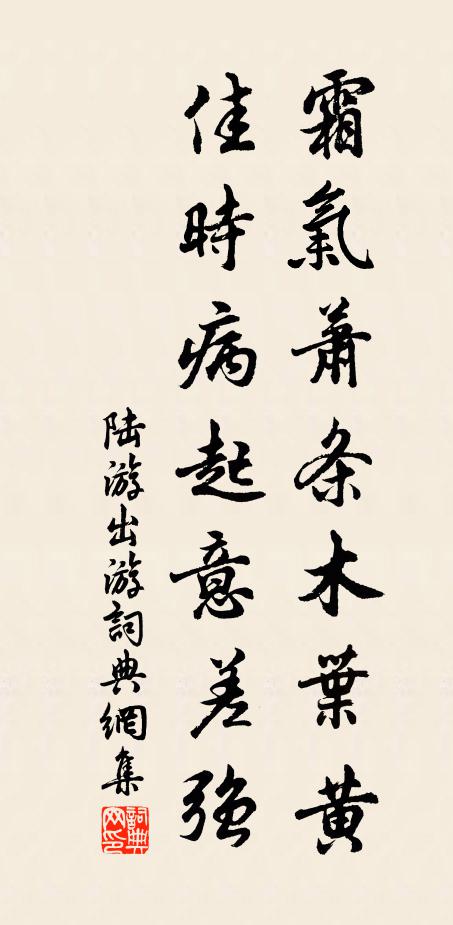 霜氣蕭条木葉黃
佳時病起意差强
陆游出游詞典網集
詞典網印